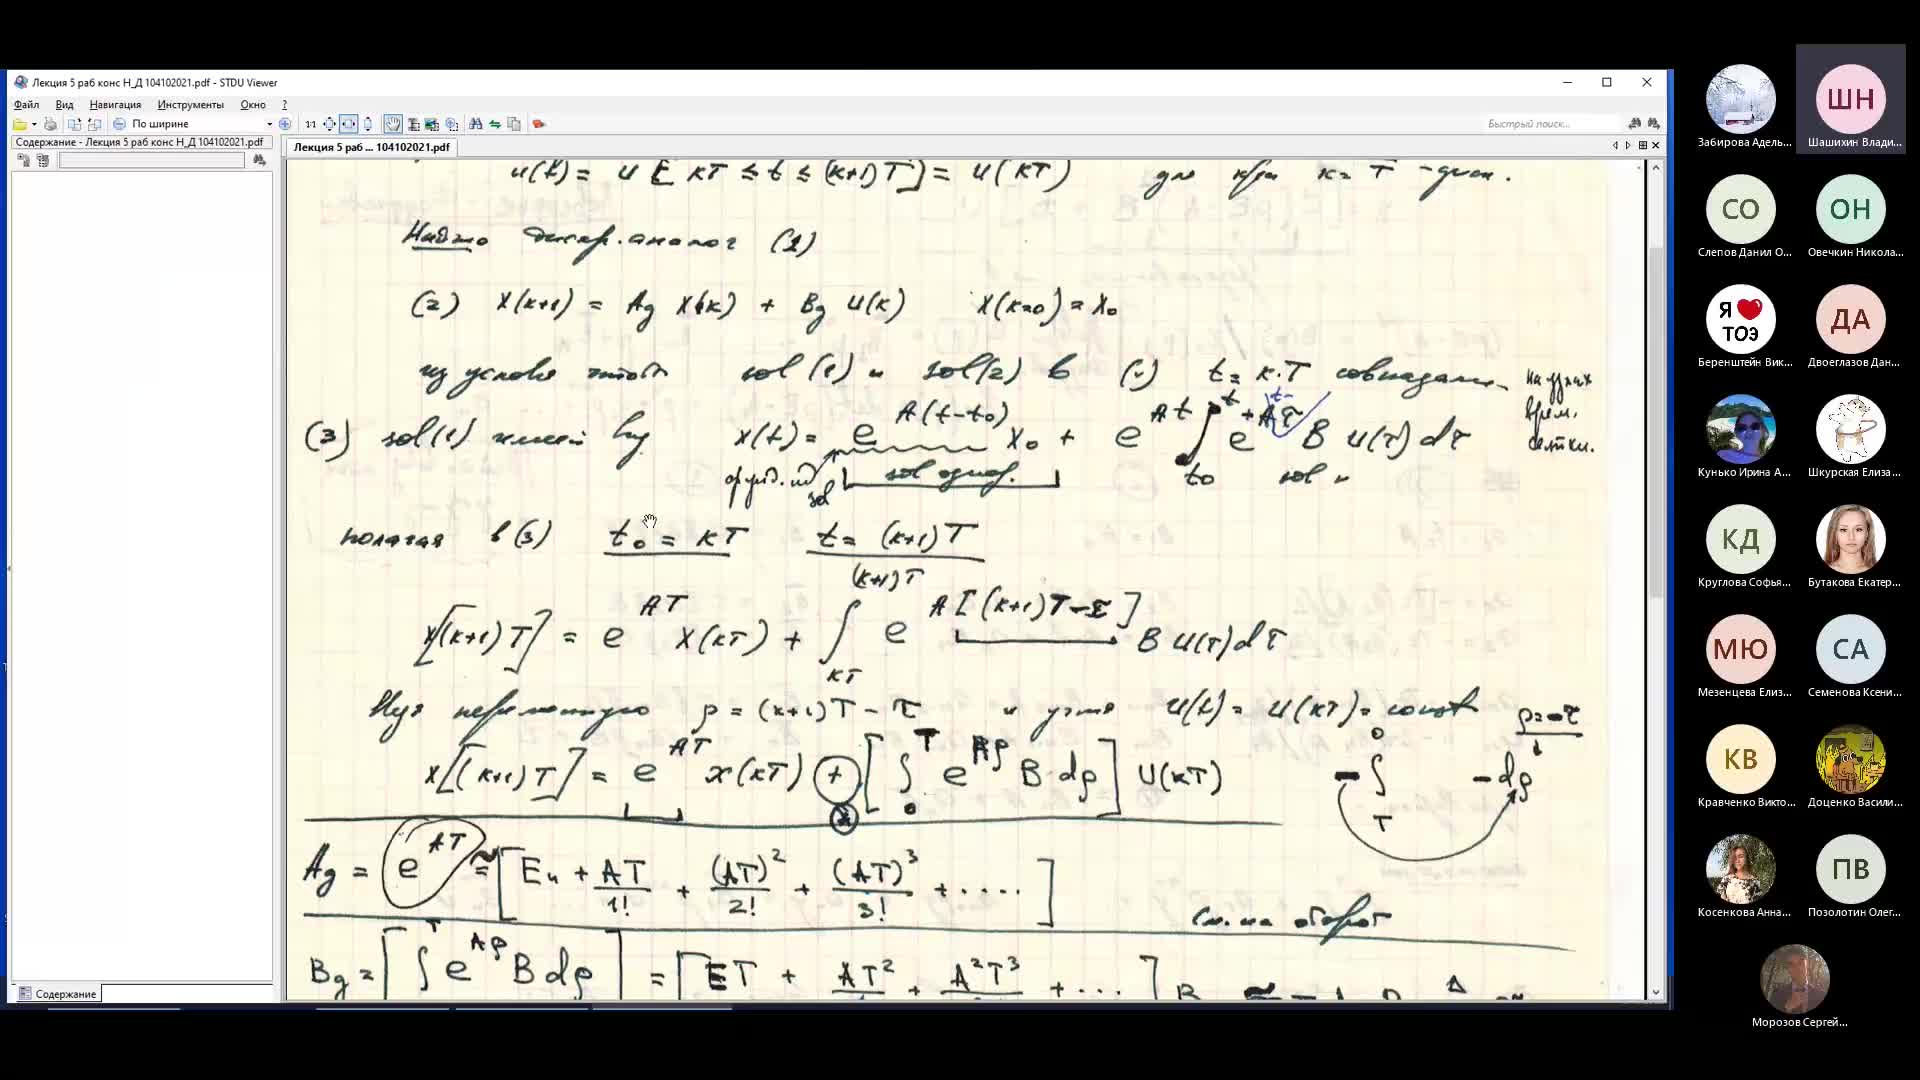 Лекция 5 раб конс Н_Д 104102021.pdf - STDU Viewer
Файл Вид Навигация Инструменты Окно ?
По ширине
1:1
Быстрый поиск...
Содержание - Лекция 5 раб конс Н_Д 104102021.pdf
Лекция 5 раб ... 104102021.pdf
u(t) = u [kT ≤ t ≤ (k+1)T] = u(kT)
Найдю дискр. аналог (1)
(2) x(k+1) = Ag x(k) + Bg u(k) x(k=0) = x0
из условия sol(1) и sol(2) в (·) t = k·T совпадали
(3) sol(1) имеет вид x(t) = e^{A(t-t0)} x0 + e^{At} ∫_{t0}^{t} e^{Aτ} B u(τ) dτ
полагая в (3) t0 = kT t = (k+1)T
x[(k+1)T] = e^{AT} x(kT) + ∫_{kT}^{(k+1)T} e^{A[(k+1)T-τ]} B u(τ) dτ
ρ = (k+1)T - τ и учтя u(t) = u(kT) = const ρ = -τ
x[(k+1)T] = e^{AT} x(kT) + [∫_0^T e^{Aρ} B dρ] u(kT) - ∫_T^0 - dρ
Ag = e^{AT} ≈ [En + AT/1! + (AT)^2/2! + (AT)^3/3! + ....]
см. на оборот
Bg = [∫^T e^{Aρ} B dρ] = [ET + AT^2 + A^2T^3 + ...] B
Содержание
Забирова Адель...
ШН
Шашихин Влади...
СО
Слепов Данил О...
ОН
Овечкин Никола...
Я ❤ ТОЭ
Беренштейн Вик...
ДА
Двоеглазов Дан...
Кунько Ирина А...
Шкурская Елиза...
КД
Круглова Софья...
Бутакова Екатер...
МЮ
Мезенцева Елиз...
СА
Семенова Ксени...
КВ
Кравченко Викто...
Доценко Васили...
Косенкова Анна...
ПВ
Позолотин Олег...
Морозов Сергей...